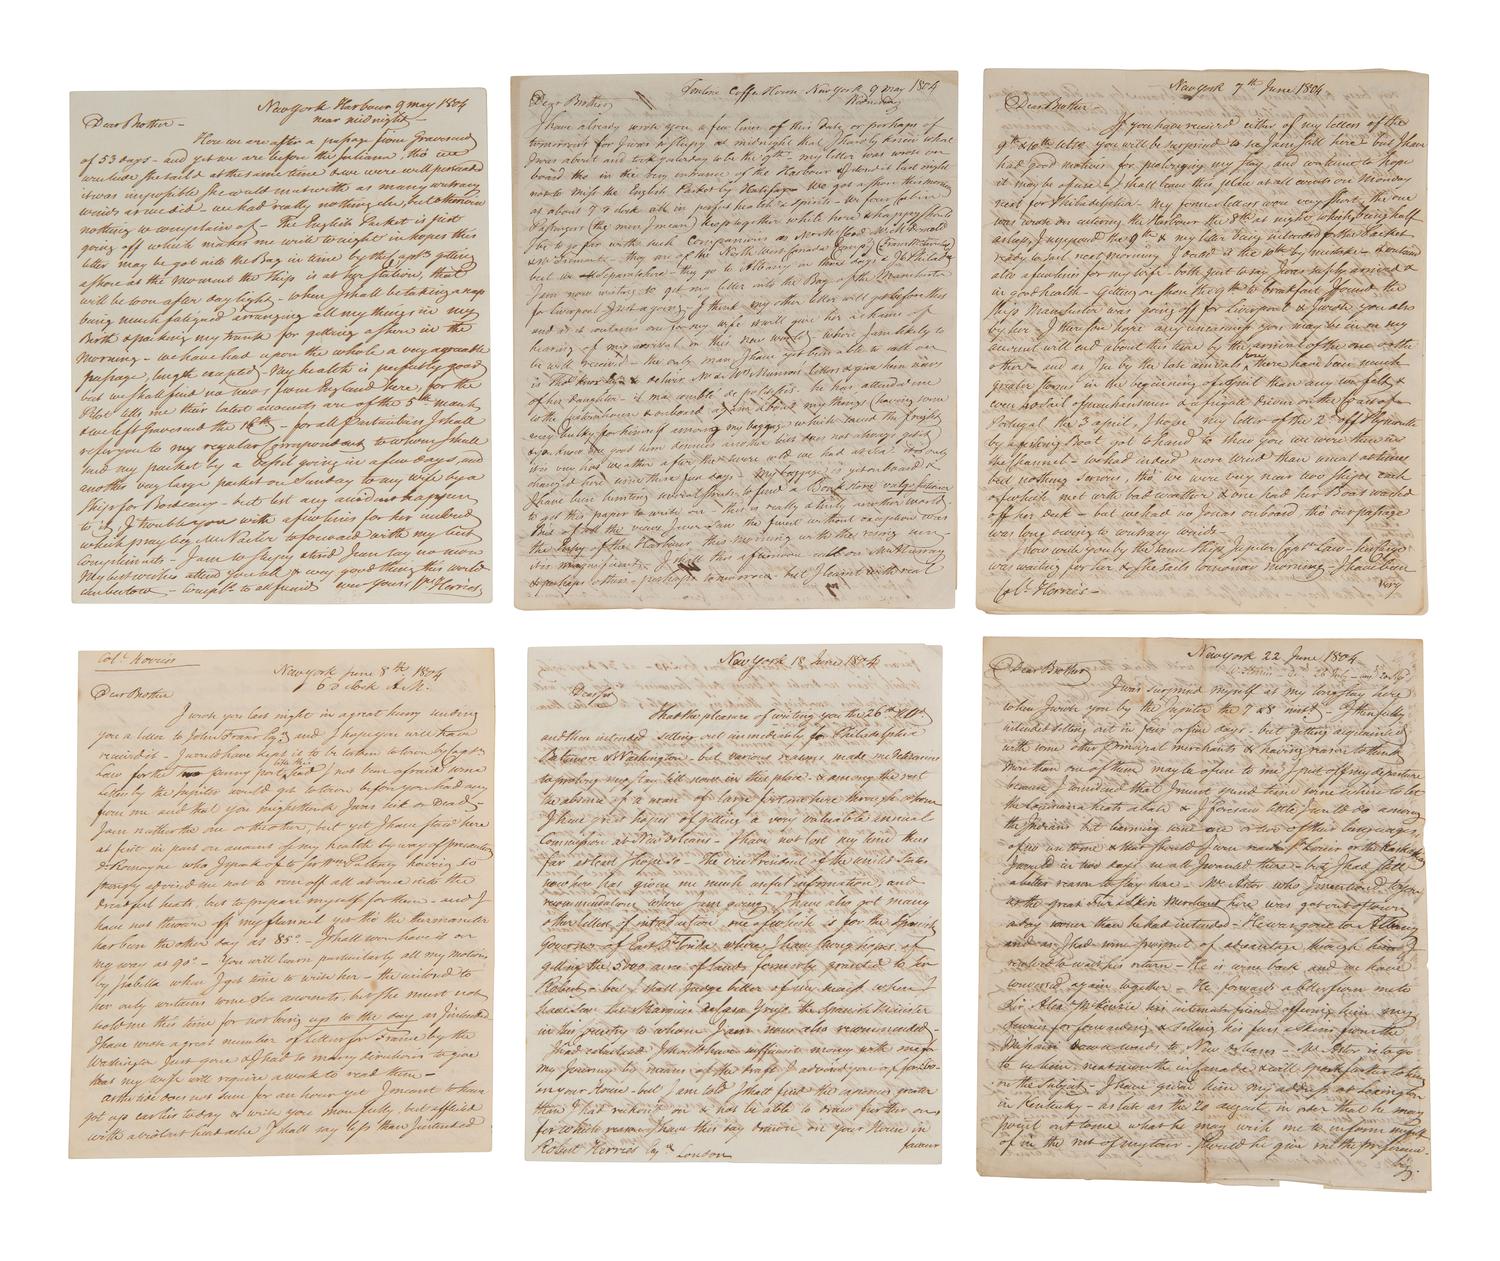 New York Harbour 9 May 1804
near midnight
Dear Brother -
Here we are after a passage from Gravesend
of 53 days - and yet we are before the Juliana, tho' we
were told she sail'd at the same time & we were well persuaded
it was impossible she could meet with as many contrary
winds as we did - we had really nothing else, but otherwise
nothing to complain of - The English Packet is just
going off which makes me write to night in hopes this
letter may be got into the Bag in time by the Capt's getting
ashore at the moment the Ship is at her station, that
will be soon after day light - when I shall be taking a nap
being much fatigued arranging all my things in my
Birth & packing my trunk for getting ashore in the
morning - we have had upon the whole a very agreeable
passage, length excepted. My health is perfectly good
but we shall find no news from England here, for the
Pilot tells me their latest accounts are of the 5th March
& we left Gravesend the 18th - for all particulars I shall
refer you to my regular correspondent to whom I shall
send my packet by a Vessel going in a few days and
another very large packet on Sunday to my wife by a
Ship for Bordeaux - but lest any accident happen
to it, I trouble you with a few lines for her inclosed
which pray beg Mr to forward with my best
compliments - I am so sleepy & tired I can say no more
My best wishes attend you all & every good thing this world
can bestow - Compts. to all friends ever yours Wm Herries
Tontine Coffee House New York 9 May 1804
Wednesday
Dear Brother
I have already wrote you a few lines of this date or perhaps of
tomorrow for I was so sleepy at midnight that I hardly knew what
I was about and took yesterday to be the 9th - my letter was wrote on
board the in the very entrance of the Harbour & closed it last night
not to miss the English Packet by Halifax. We got ashore this morning
at about 7 o'clock all in perfect health & spirits - We four Cabin
Passengers (the men I mean) keep together while here & happy should
I be to go far with such Companions as
they are of the North West Canada Comp.y
but we separate here - they go to Albany in three days & I to Philad.a
I am now writing to get my letter into the Bag of the Manchester
for Liverpool just a going. I think my other letter will get before this
and as it contains one for my wife it will give her a chance of
hearing of my arrival in this new world where I am likely to
be well received - the only man I have yet been able to call on
is
of her daughter - it was amiable & polite of his. he has attended me
to the Customhouse & onboard again about my things (having some
very bulky for himself among my baggage which saved the freight
& you know one good turn deserves another but does not always get it)
It is very hot weather after the severe cold we had at Sea. It is only
changed here since three few days - my baggage is yet onboard &
I have been hunting several streets to find a Book store vulgo stationer
to get this paper to write on - this is really a thirsty new world
This is of all the views I ever saw the finest without exception was
the Entry of the Harbour this morning with the rising sun
it is magnificent. I shall this afternoon call on Mr Murray
& perhaps others - perhaps tomorrow - but I learnt with real
New York 7th June 1804
Dear Brother
If you have received either of my letters of the
9th & 10th Ulto you will be surprised to see I am still here but I have
had good motives for prolonging my stay and continue to hope
it may be of use - I shall leave this place at all events on Monday
next for Philadelphia - My former letters were very short, the one
was wrote on entering the Harbour the 8th at night which being half
asleep, I supposed the 9th & my letter being intended for the Packet
ready to sail next morning I dated it the 10th by mistake - containd
also a few lines for my wife - both just to say I was safely arrived &
in good health - Getting on shore the 9th to breakfast I found the
Ship Manchester was going off for Liverpool & I wrote you also
by her. I therefore hope any uneasiness you may be in on my
account will end about this time by the arrival of the one or the
other - and as I see by the late arrivals there have been much
greater storms in the beginning of April than any we felt &
even a deal of merchantmen & a frigate driven on the coast of
Portugal the 3 April, I hope my letter of the 2 off Plymouth
by a fishing Boat got to hand to shew you we were then in
the Channel - we had indeed more wind than usual at times
but nothing serious, tho' we were very near two ships each
of which met with bad weather & one had her Boats washed
off her deck - but we had no Jonas onboard tho' our passage
was long owing to contrary winds -
I now write you by the same ship Jupiter Capt.n Law -
was waiting for her & she sails tomorrow morning - I have been
very
Col.l Herries -
Col.l Herries
New York June 8th 1804
6 o'clock A.M.
Dear Brother
I wrote you last night in a great hurry sending
you a letter to John Franc.s Co. and I hope you will have
received it - I would have kept it to be taken to town by Capt.
Law for the penny post like this had I not been afraid some
letters by the Jupiter would get to town before you had any
from me and that you might think I was sick or dead -
I am neither the one or the other, but yet I have staid here
at first in part on account of my health by way of precaution
D.r Romayne who I speak of to Sir Wm Pulteney having so
strongly advised me not to run off all at once into the
dreadful heats, but to prepare myself for them - and I
have not thrown off my flannel yet tho' the thermometer
has been the other day at 85° - I shall soon have it on
my way at 90° - You will learn particularly all my motions
by Isabella when I get time to write her - the inclosed to
her only contains some Sea accounts, but she must not
scold me this time for not being up to the day as I intended
I have wrote a great number of Letters for France by the
Washington just gone & I had so many directions to give
that my wife will require a week to read them -
as the tide does not serve for an hour yet I meant to have
got up earlier today & write you more fully, but afflicted
with a violent headache I shall say less than I intended
New York 18 June 1804
Dear Sir
I had the pleasure of writing you the 26th Ulto
and then intended setting out immediately for Philadelphia
Baltimore & Washington - but various reasons made me determine
to prolong my stay till now in this place - & among the rest
the absence of a man of large fortune here through whom
I have great hopes of getting a very valuable annual
Commission at New Orleans - I have not lost my time thus
far at least I hope so - The vice President of the united States
now here has given me much useful information, and
recommendations where I am going - I have also got many
other letters of introduction one of which is for the Spanish
Governor of East Florida where I have strong hopes of
getting the 5000 acres of Lands formerly granted to Sir
Robert - but I shall judge better of this business when I
have seen the Marquis de Casa Yrujo the Spanish Minister
in this country to whom I am now also recommended -
I had calculated I should have sufficient money with me for
my Journey by means of the draft I advised you of for £100 -
on your House - but I am told I shall find the expences greater
than I had reckon'd on & not be able to draw further on,
for which reason I have this day drawn on your House in
favour
Robert Herries Esq.r London
New York 22 June 1804
Dear Brother
I was surprised myself at my long stay here
when I wrote you by the Jupiter the 7 & 8 inst.t I then fully
intended setting out in four or five days - but getting acquainted
with some other principal merchants & having reason to think
more than one of them may be of use to me I put off my departure
because I considered that I must spend time some where to let
the Louisiana heats abate & I foresaw little I was to do among
the Indians but learning some one or two of their languages,
of no use to me & that should I even reach St Louis or the Kaskaskias
I would in two days see all I wanted there - but I had still
a better reason to stay here - Mr Astor who I mentioned to you
as the great Fur & Skin Merchant here was got out of town
a day sooner than he had intended - He was gone to Albany
and as I had some prospect of advantage through him I
resolved to wait his return - He is come back and we have
conversed again together - He forwards a letter from me to
Sir Alex.r McKenzie his intimate friend offering him my
services for forwarding & selling his furs & skins from the
Missisipi downwards to New Orleans - Mr Astor is to go
to see him next month in Canada & will speak further to him
on the subject - I have given him my address at Lexington
in Kentucky - as late as the 20 August in order that he may
point out to me what he may wish me to inform myself
of in the rest of my tour - Should he give me the preference
by